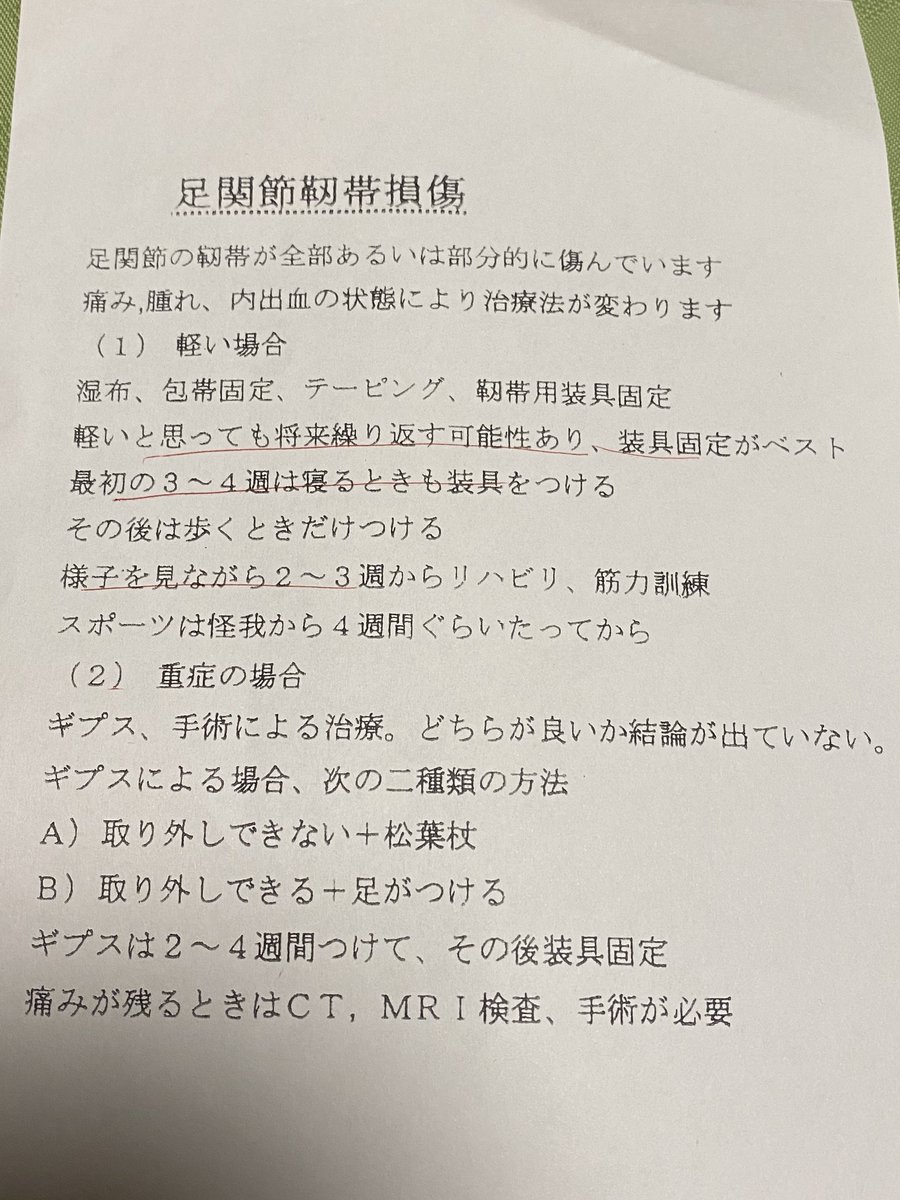 足関節靭帯損傷
足関節の靭帯が全部あるいは部分的に傷んでいます
痛み,腫れ、内出血の状態により治療法が変わります
（１） 軽い場合
湿布、包帯固定、テーピング、靭帯用装具固定
軽いと思っても将来繰り返す可能性あり、装具固定がベスト
最初の３～４週は寝るときも装具をつける
その後は歩くときだけつける
様子を見ながら２～３週からリハビリ、筋力訓練
スポーツは怪我から４週間ぐらいたってから
（２） 重症の場合
ギプス、手術による治療。どちらが良いか結論が出ていない。
ギプスによる場合、次の二種類の方法
Ａ）取り外しできない＋松葉杖
Ｂ）取り外しできる＋足がつける
ギプスは２～４週間つけて、その後装具固定
痛みが残るときはＣＴ，ＭＲＩ検査、手術が必要